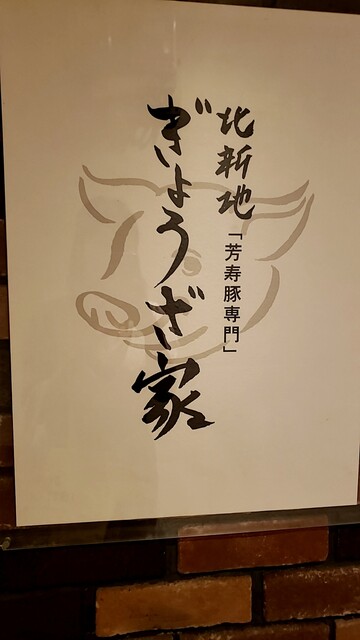 北新地
「芳寿豚専門」
ぎょうざ家